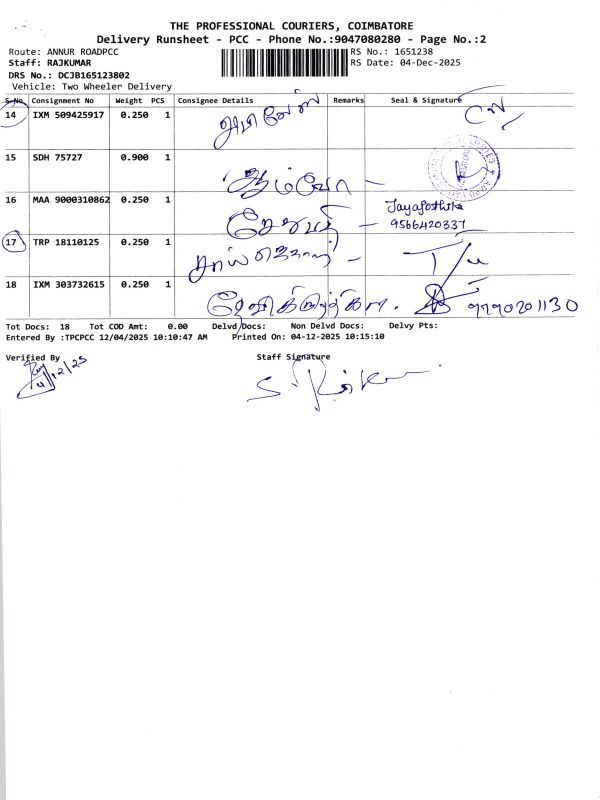 THE PROFESSIONAL COURIERS, COIMBATORE
Delivery Runsheet - PCC - Phone No.:9047080280 - Page No.:2
Route: ANNUR ROADPCC RS No.: 1651238
Staff: RAJKUMAR RS Date: 04-Dec-2025
DRS No.: DCJB165123802
Vehicle: Two Wheeler Delivery
S.No. Consignment No Weight PCS Consignee Details Remarks Seal & Signature
14 IXM 509425917 0.250 1
15 SDH 75727 0.900 1
16 MAA 9000310862 0.250 1 9566420337
17 TRP 18110125 0.250 1
18 IXM 303732615 0.250 1 9790201130
Tot Docs: 18 Tot COD Amt: 0.00 Delvd Docs: Non Delvd Docs: Delvy Pts:
Entered By :TPCPCC 12/04/2025 10:10:47 AM Printed On: 04-12-2025 10:15:10
Verified By Staff Signature
4/12/25